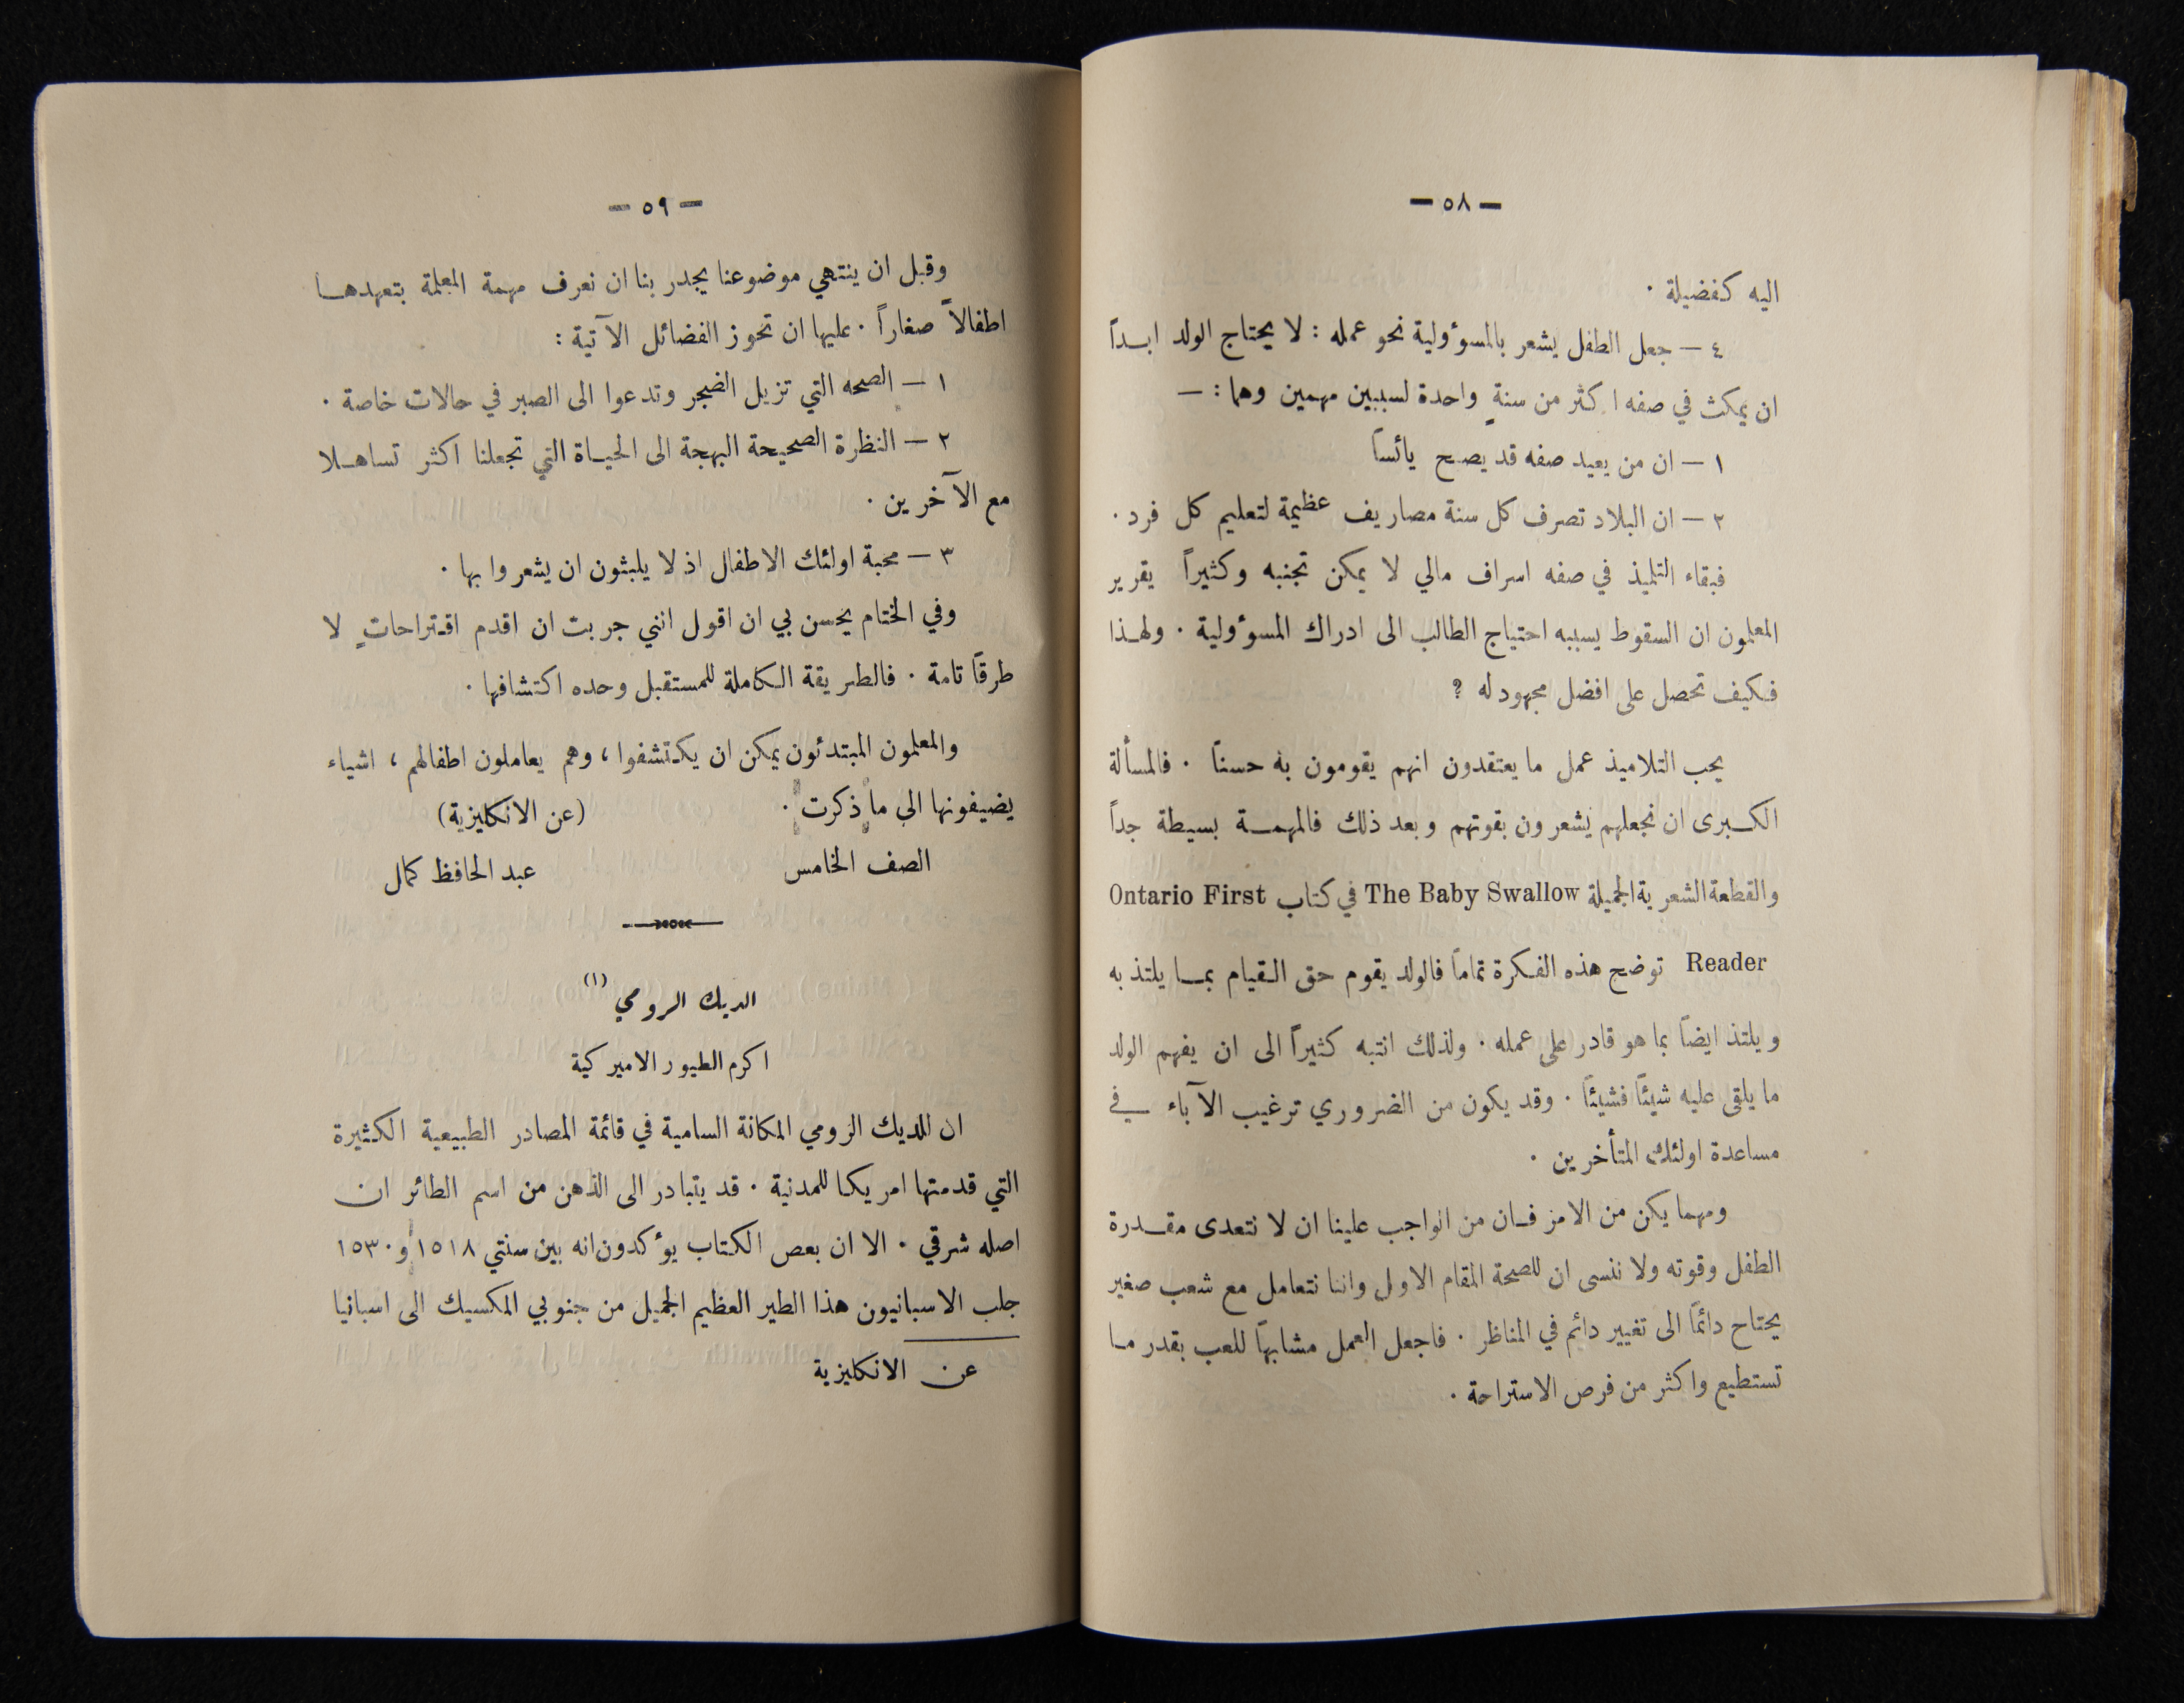 — ٥٨ —
اليه كفضيلة ٠
٤ — جعل الطفل يشعر بالمسوؤلية نحو عمله : لا يحتاج الولد ابداً
ان يمكث في صفه اكثر من سنةٍ واحدة لسببين مهمين وهما : —
١ — ان من يعيد صفه قد يصح يائساً
٢ — ان البلاد تصرف كل سنة مصاريف عظيمة لتعليم كل فرد ٠
فبقاء التلميذ في صفه اسراف مالي لا يمكن تجنبه وكثيراً يقرير
المعلمون ان السقوط يسببه احتياج الطالب الى ادراك المسوؤلية ٠ ولهذا
فكيف تحصل على افضل مجهود له ؟
يحب التلاميذ عمل ما يعتقدون انهم يقومون به حسناً ٠ فالمسألة
الكبرى ان نجعلهم يشعرون بقوتهم وبعد ذلك فالمهمة بسيطة جداً
والقطعة الشعرية الجميلة The Baby Swallow في كتاب Ontario First
Reader توضح هذه الفكرة تماماً فالولد يقوم حق القيام بما يلتذ به
ويلتذ ايضاً بما هو قادر على عمله ٠ ولذلك انتبه كثيراً الى ان يفهم الولد
ما يلقى عليه شيئاً فشيئاً ٠ وقد يكون من الضروري ترغيب الآباء في
مساعدة اولئك المتأخرين ٠
ومهما يكن من الامر فان من الواجب علينا ان لا نتعدى مقدرة
الطفل وقوته ولا ننسى ان للصحة المقام الاول واننا نتعامل مع شعب صغير
يحتاج دائماً الى تغيير دائم في المناظر ٠ فاجعل العمل مشابهاً للعب بقدر ما
تستطيع واكثر من فرص الاستراحة ٠
— ٥٩ —
وقبل ان ينتهي موضوعنا يجدر بنا ان نعرف مهمة المعلمة بتعهدها
اطفالاً صغاراً ٠ عليها ان تحوز الفضائل الآتية :
١ — الصحه التي تزيل الضجر وتدعوا الى الصبر في حالات خاصة ٠
٢ — النظرة الصحيحة البهجة الى الحياة التي تجعلنا اكثر تساهلا
مع الآخرين ٠
٣ — محبة اولئك الاطفال اذ لا يلبثون ان يشعروا بها ٠
وفي الختام يحسن بي ان اقول انني جربت ان اقدم اقتراحاتٍ لا
طرقاً تامة ٠ فالطريقة الكاملة للمستقبل وحده اكتشافها ٠
والمعلمون المبتدئون يمكن ان يكتشفوا ، وهم يعاملون اطفالهم ، اشياء
يضيفونها الى ما ذكرت ٠ (عن الانكليزية)
الصف الخامس عبد الحافظ كمال
الديك الرومي (١)
اكرم الطيور الاميركية
ان للديك الرومي المكانة السامية في قائمة المصادر الطبيعية الكثيرة
التي قدمتها امريكا للمدنية ٠ قد يتبادر الى الذهن من اسم الطائر ان
اصله شرقي ٠ الا ان بعص الكتاب يوءكدون انه بين سنتي ١٥١٨ و ١٥٣٠
جلب الاسبانيون هذا الطير العظيم الجميل من جنوبي المكسيك الى اسبانيا
عن الانكليزية